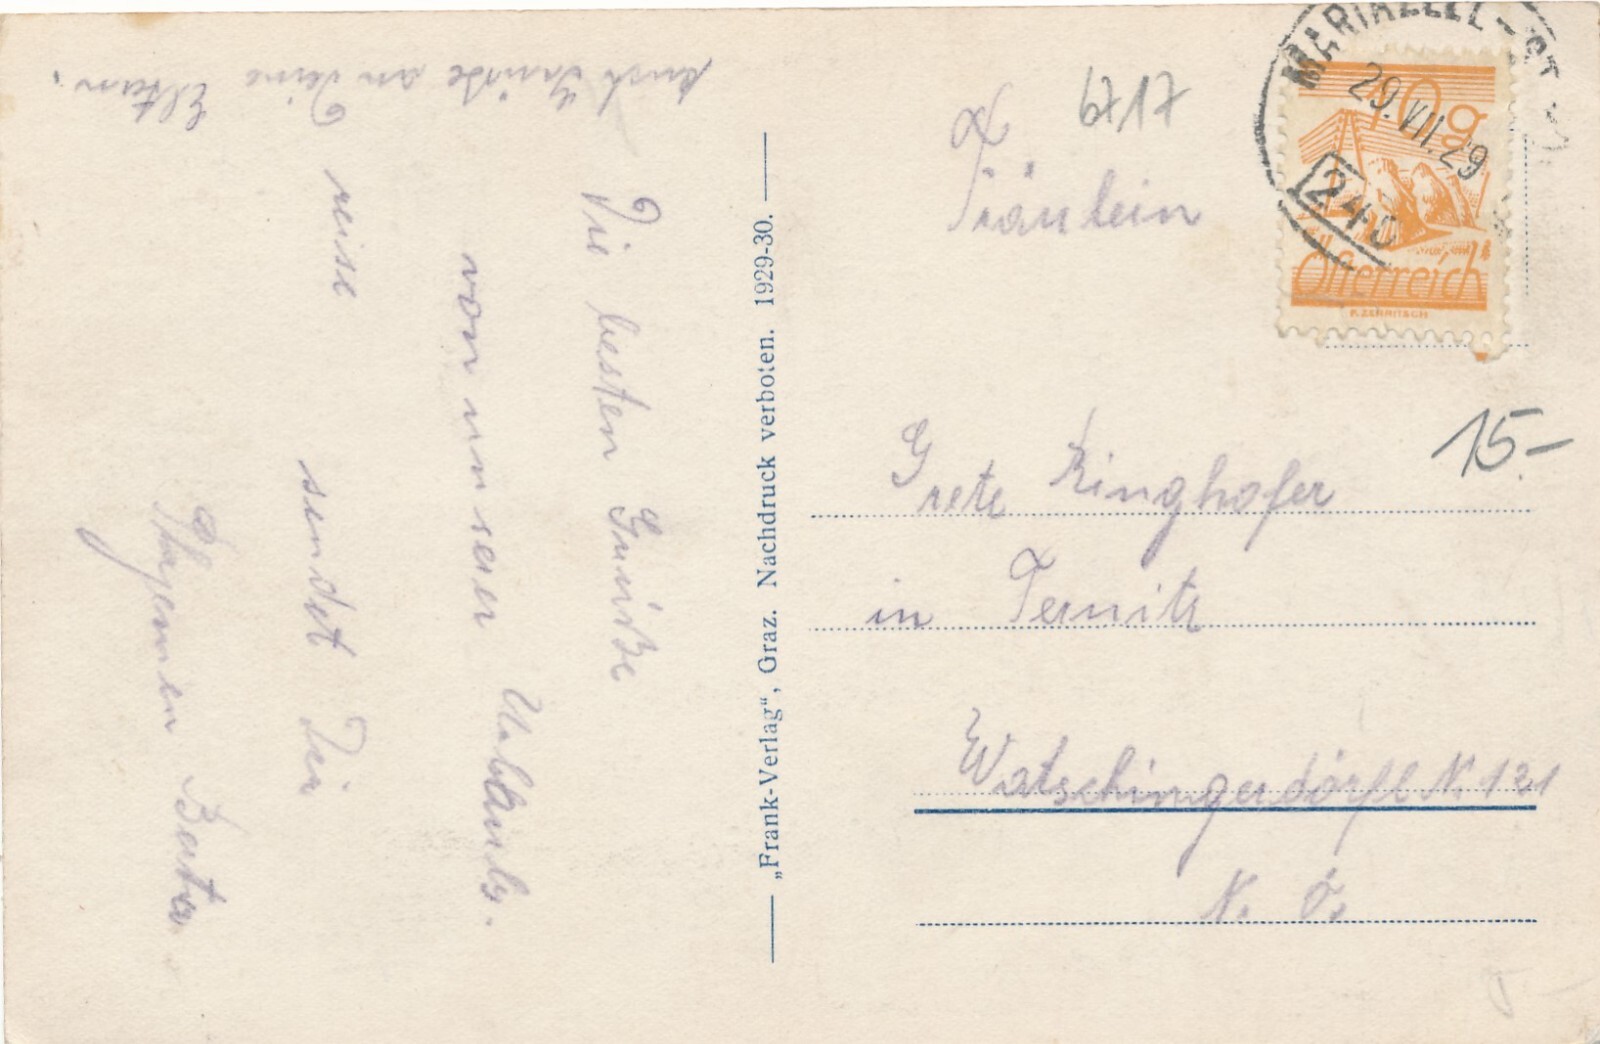 Die besten Grüße
von unserer Urlaubs-
reise sendet Dir
Berta
Auch Grüße an Deine Eltern.
„Frank-Verlag“, Graz. Nachdruck verboten. 1929-30.
6717
Fräulein
Grete Ringhofer
in Ternitz
Watschingerdörfl N. 121
N. Ö.
15-
MARIAZELL - ST
29.VII.29
240
10g
Österreich